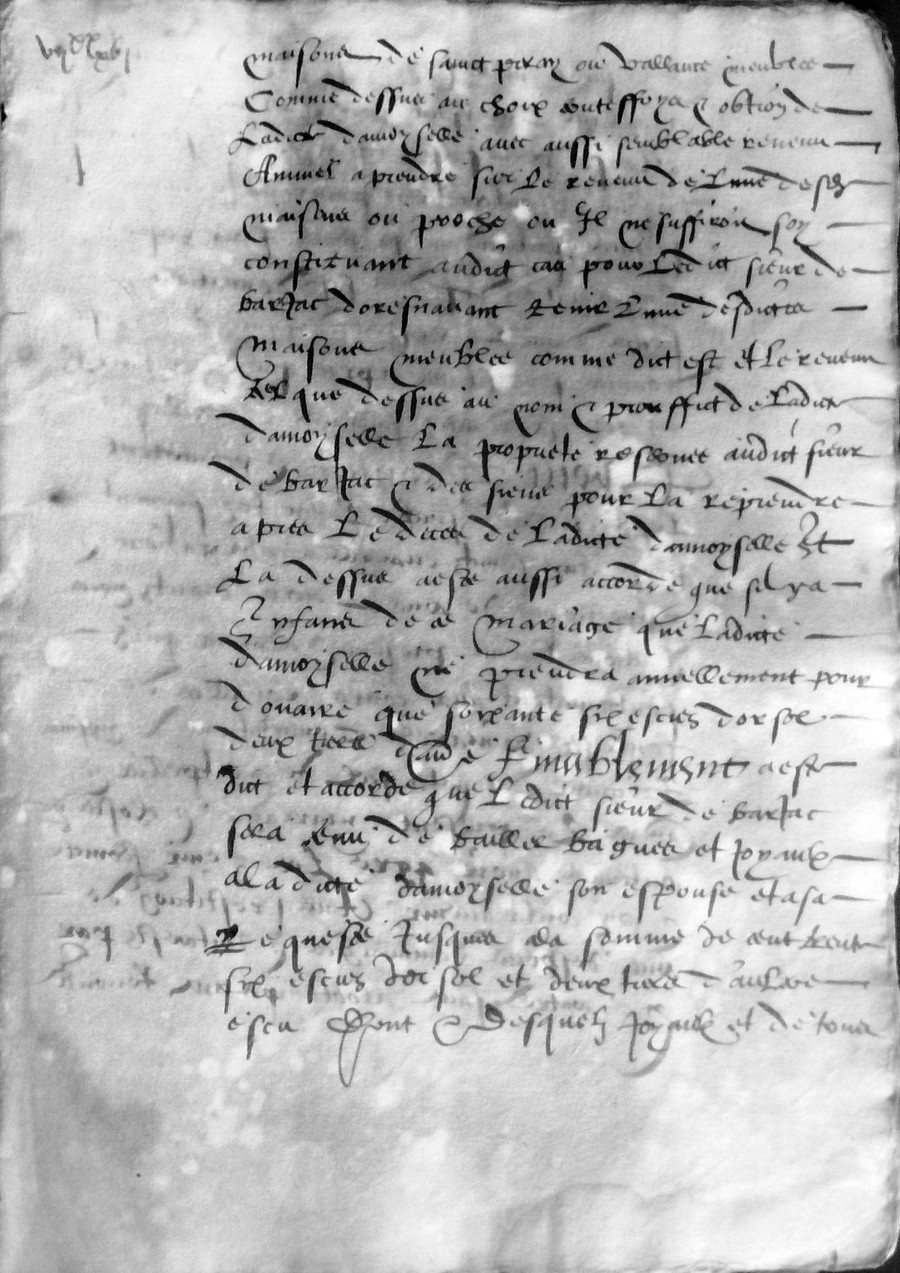 maisons de sainct peray ou vallance meublee
Comme dessus au choix et obtion de
Ladicte damoyselle avec aussi semblable revenu
Annuel a prendre sur le revenu de Lune de ses
maisons ou proche ou Il ne suffiroit soy
constituant audict cas pour Ledict sieur de
barJac doresnavant tenir Lune desdictes
maisons meublee comme dict est et le revenu
tel que dessus au nom & prouffict de Ladicte
damoyselle La propriete reservee audict sieur
de barJac & des siens pour La reprendre
apres Le deces de Ladicte damoyselle Et
La dessus a este aussi accorde que sil y a
Enfans de ce mariage que Ladicte
damoyselle ne prendra annuellement pour
douaire que soixante six escus dor sol
deux tiers Finablement a este
dict et accorde que Ledict sieur de barJac
sera tenu de bailler bagues et Joyaulx
a ladicte damoyselle son espouse et a sa
Requeste Jusques a la somme de cent trente
six escus dor sol et deux tiers d'aultre
escu Dont & Desquelz Joyaulx et de tous